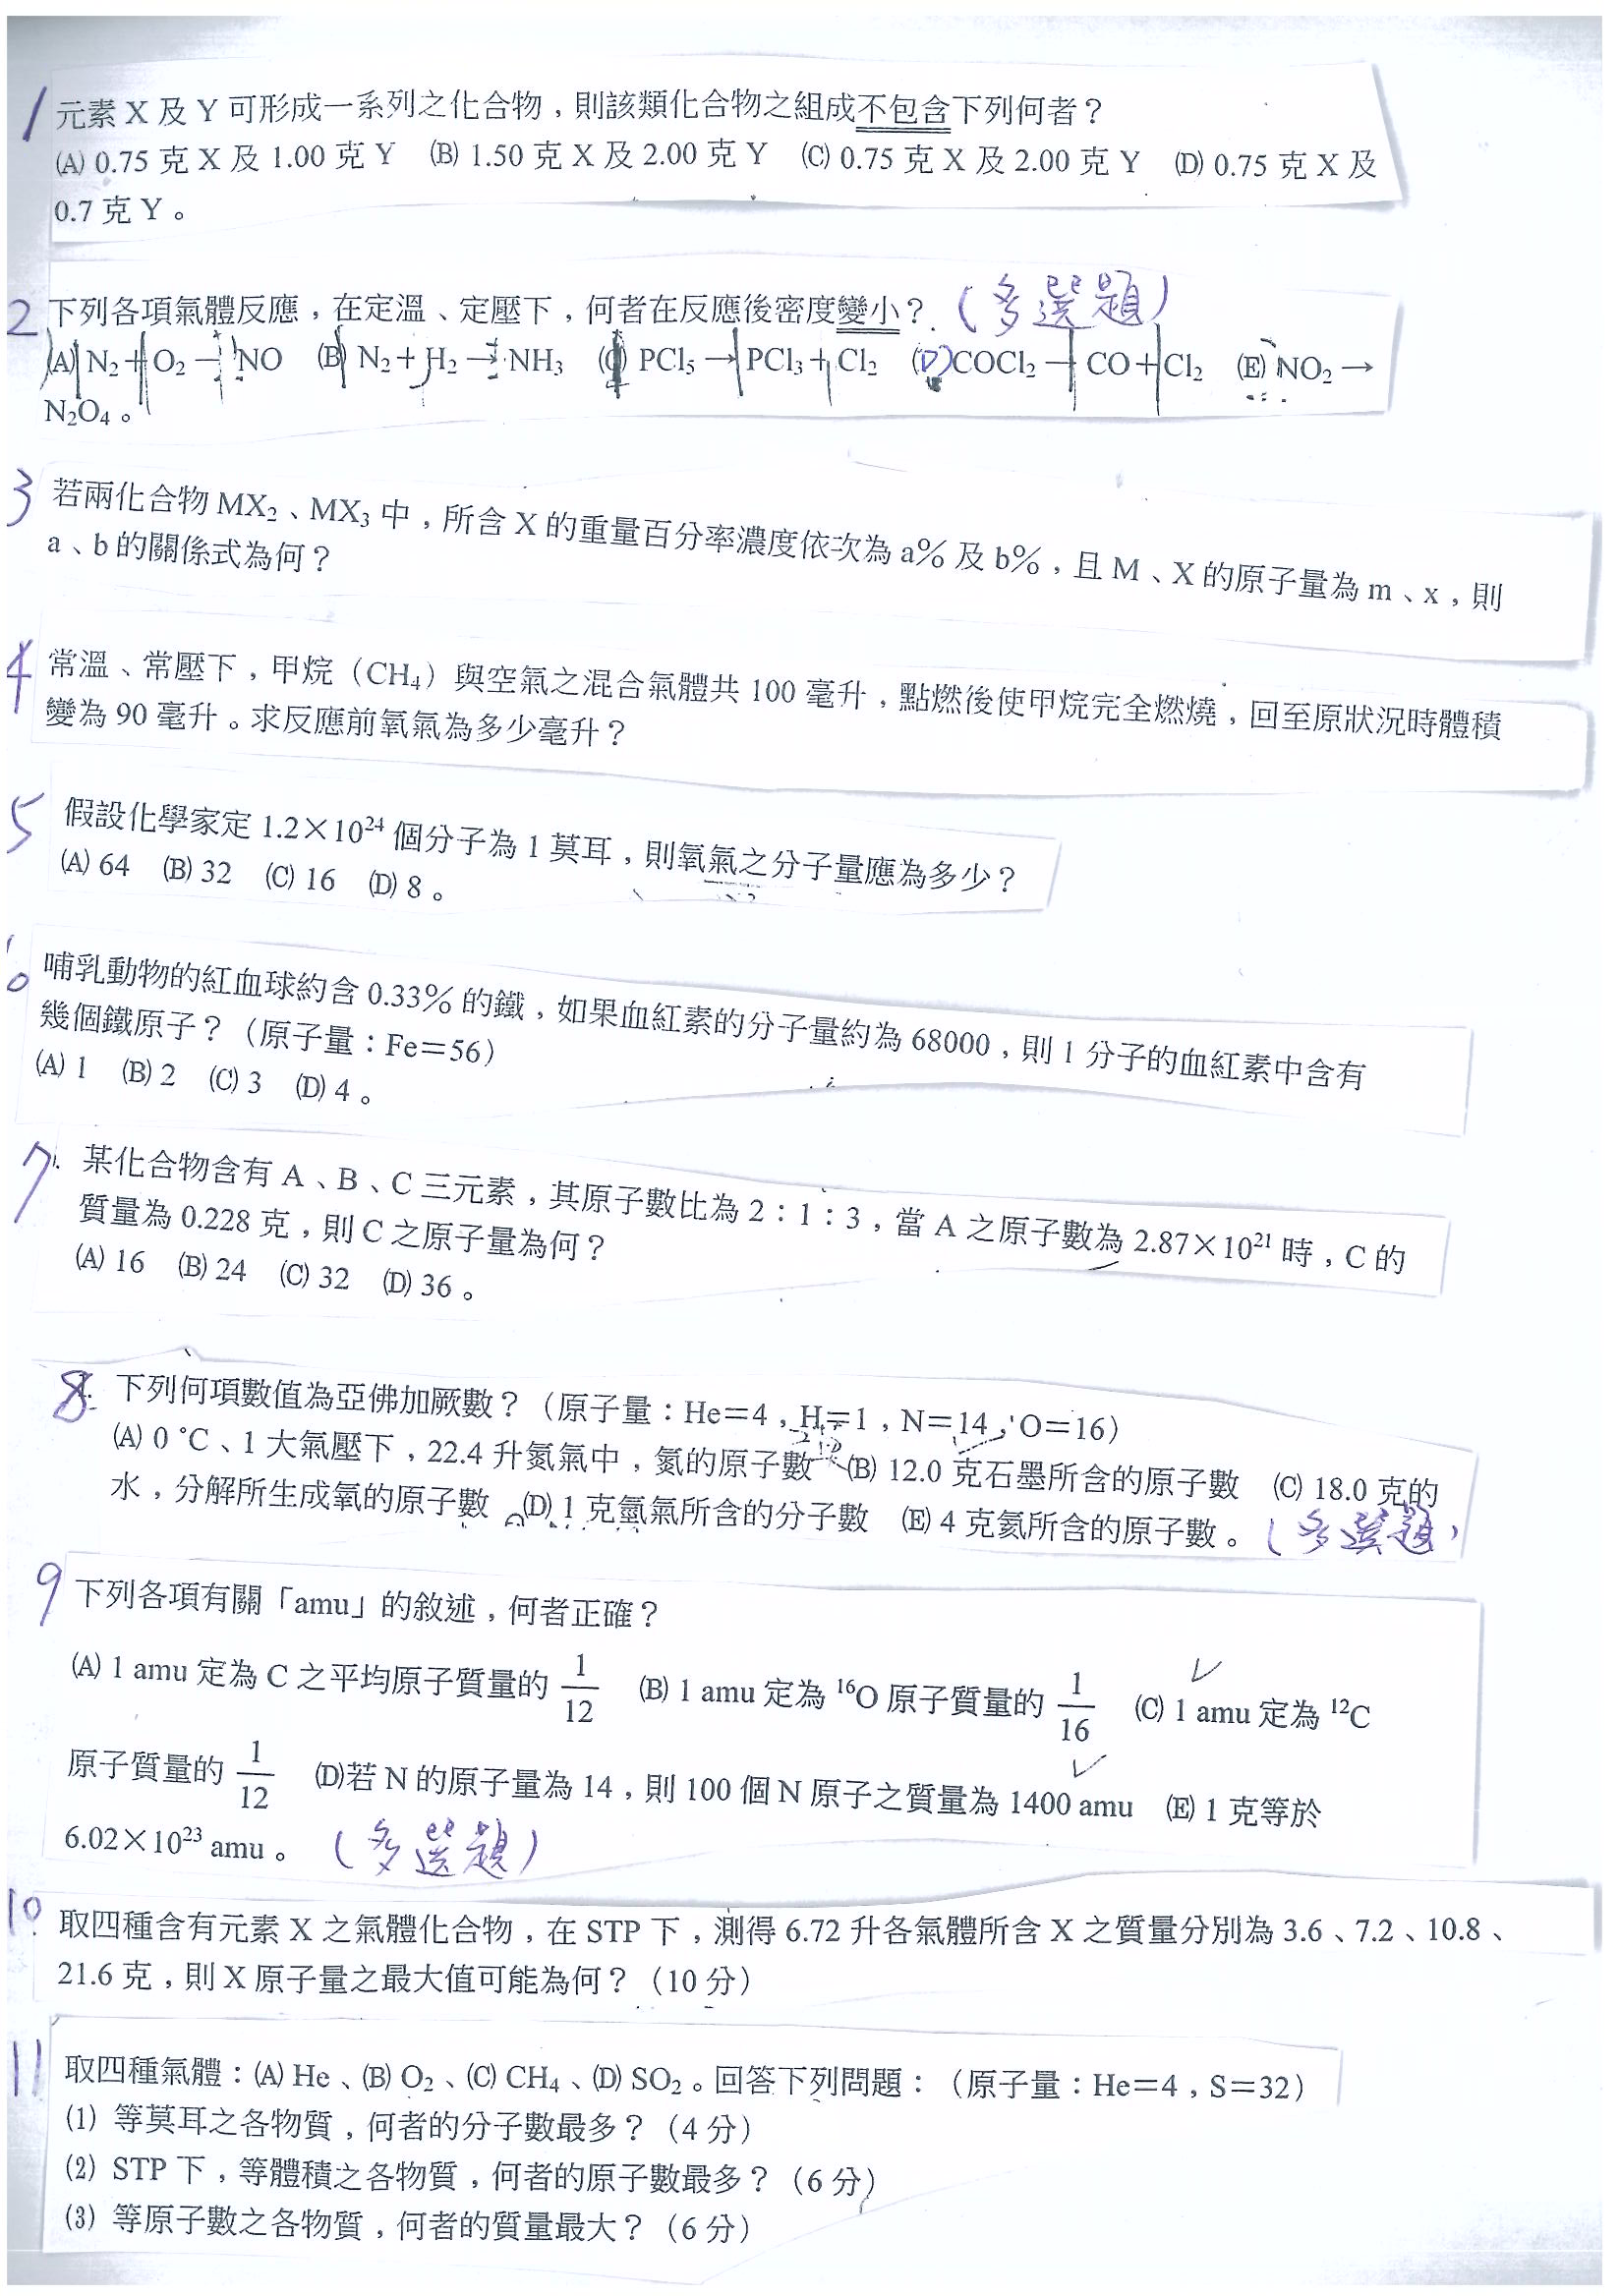 1 元素 X 及 Y 可形成一系列之化合物，則該類化合物之組成不包含下列何者？
(A) 0.75 克 X 及 1.00 克 Y (B) 1.50 克 X 及 2.00 克 Y (C) 0.75 克 X 及 2.00 克 Y (D) 0.75 克 X 及
0.7 克 Y。
2 下列各項氣體反應，在定溫、定壓下，何者在反應後密度變小？(多選題)
(A) N₂＋O₂→NO (B) N₂＋H₂→NH₃ (C) PCl₅→PCl₃＋Cl₂ (D) COCl₂→CO＋Cl₂ (E) NO₂→
N₂O₄。
3 若兩化合物 MX₂、MX₃ 中，所含 X 的重量百分率濃度依次為 a％ 及 b％，且 M、X 的原子量為 m、x，則
a、b 的關係式為何？
4 常溫、常壓下，甲烷（CH₄）與空氣之混合氣體共 100 毫升，點燃後使甲烷完全燃燒，回至原狀況時體積
變為 90 毫升。求反應前氧氣為多少毫升？
5 假設化學家定 1.2×10²⁴ 個分子為 1 莫耳，則氧氣之分子量應為多少？
(A) 64 (B) 32 (C) 16 (D) 8。
6 哺乳動物的紅血球約含 0.33％ 的鐵，如果血紅素的分子量約為 68000，則 1 分子的血紅素中含有
幾個鐵原子？（原子量：Fe＝56）
(A) 1 (B) 2 (C) 3 (D) 4。
7. 某化合物含有 A、B、C 三元素，其原子數比為 2：1：3，當 A 之原子數為 2.87×10²¹ 時，C 的
質量為 0.228 克，則 C 之原子量為何？
(A) 16 (B) 24 (C) 32 (D) 36。
8. 下列何項數值為亞佛加厥數？（原子量：He＝4，H＝1，N＝14，O＝16）
(A) 0 °C、1 大氣壓下，22.4 升氮氣中，氮的原子數 (B) 12.0 克石墨所含的原子數 (C) 18.0 克的
水，分解所生成氧的原子數 (D) 1 克氫氣所含的分子數 (E) 4 克氦所含的原子數。(多選題)
9 下列各項有關「amu」的敘述，何者正確？
(A) 1 amu 定為 C 之平均原子質量的 1/12 (B) 1 amu 定為 ¹⁶O 原子質量的 1/16 (C) 1 amu 定為 ¹²C
原子質量的 1/12 (D)若 N 的原子量為 14，則 100 個 N 原子之質量為 1400 amu (E) 1 克等於
6.02×10²³ amu。(多選題)
10. 取四種含有元素 X 之氣體化合物，在 STP 下，測得 6.72 升各氣體所含 X 之質量分別為 3.6、7.2、10.8、
21.6 克，則 X 原子量之最大值可能為何？（10 分）
11 取四種氣體：(A) He、(B) O₂、(C) CH₄、(D) SO₂。回答下列問題：（原子量：He＝4，S＝32）
(1) 等莫耳之各物質，何者的分子數最多？（4 分）
(2) STP 下，等體積之各物質，何者的原子數最多？（6 分）
(3) 等原子數之各物質，何者的質量最大？（6 分）